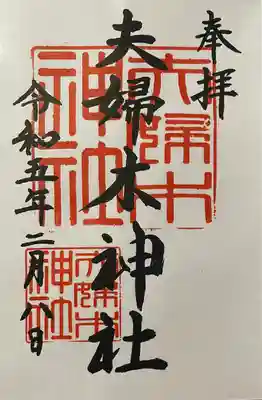 奉拝
夫婦木神社
令和五年二月八日
夫婦木神社
夫婦木神社